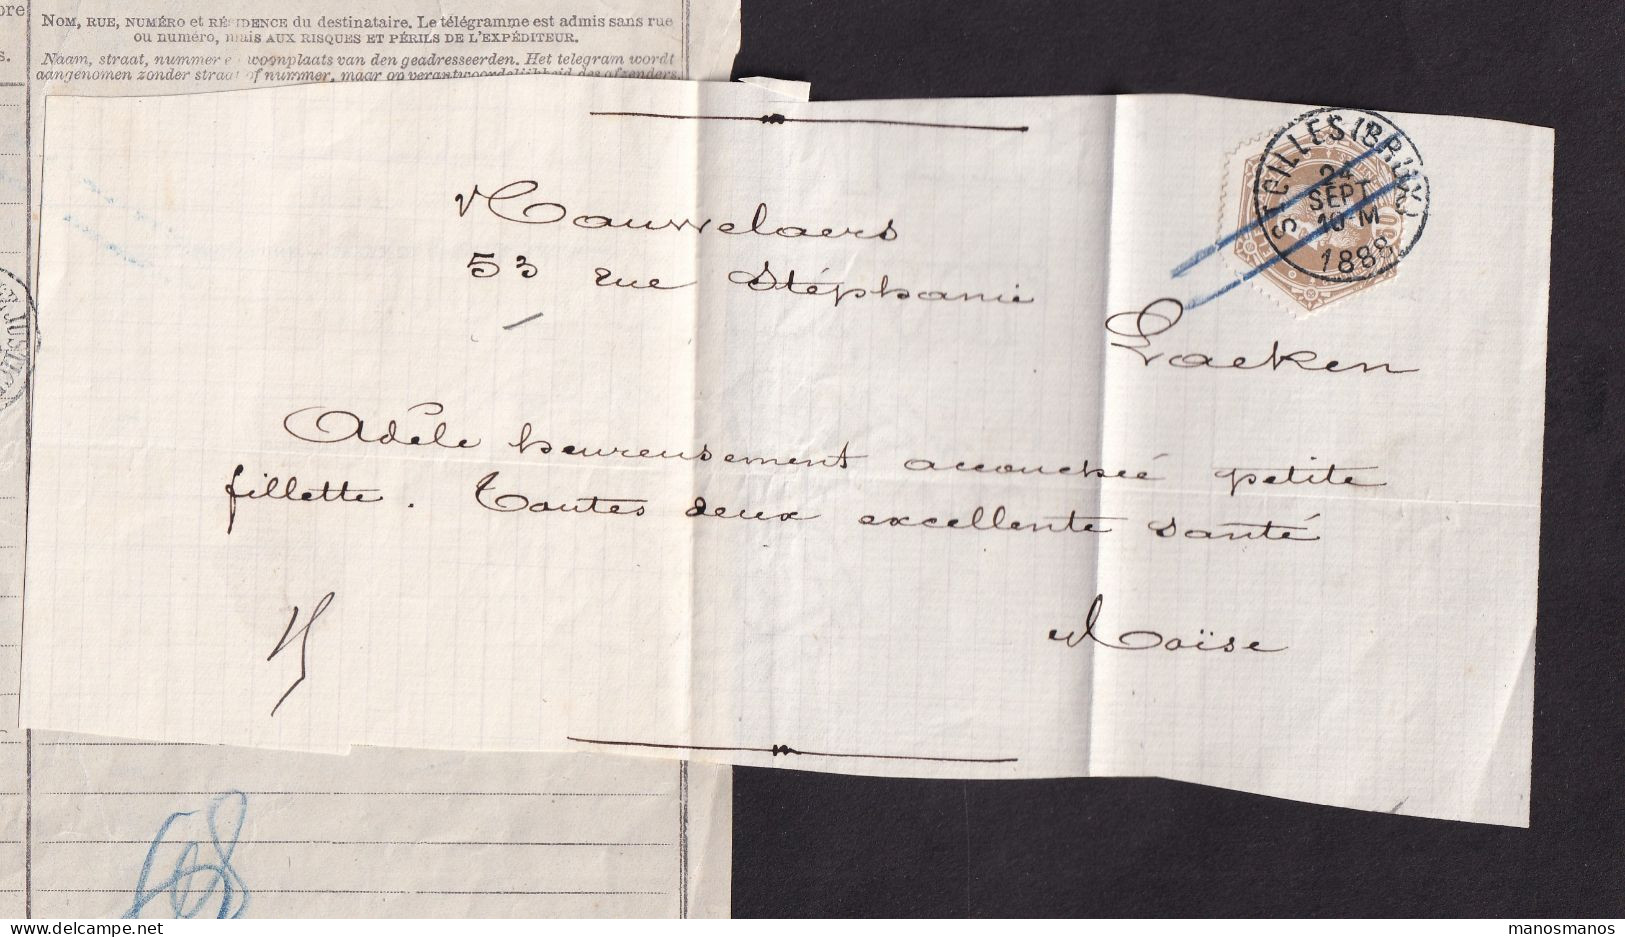 NOM, RUE, NUMÉRO et RÉSIDENCE du destinataire. Le télégramme est admis sans rue
ou numéro, mais AUX RISQUES ET PÉRILS DE L'EXPÉDITEUR.
Naam, straat, nummer e woonplaats van den geadresseerden. Het telegram wordt
aangenomen zonder straat of nummer, maar op verantwoordelijkheid des afzenders.
ST GILLES (BRUX)
24
SEPT
10-M
1888
Hauwelaers
53 rue Stéphanie
Laeken
Adèle heureusement accouchée petite
fillette. Toutes deux excellente santé
Moïse
568
manosmanos